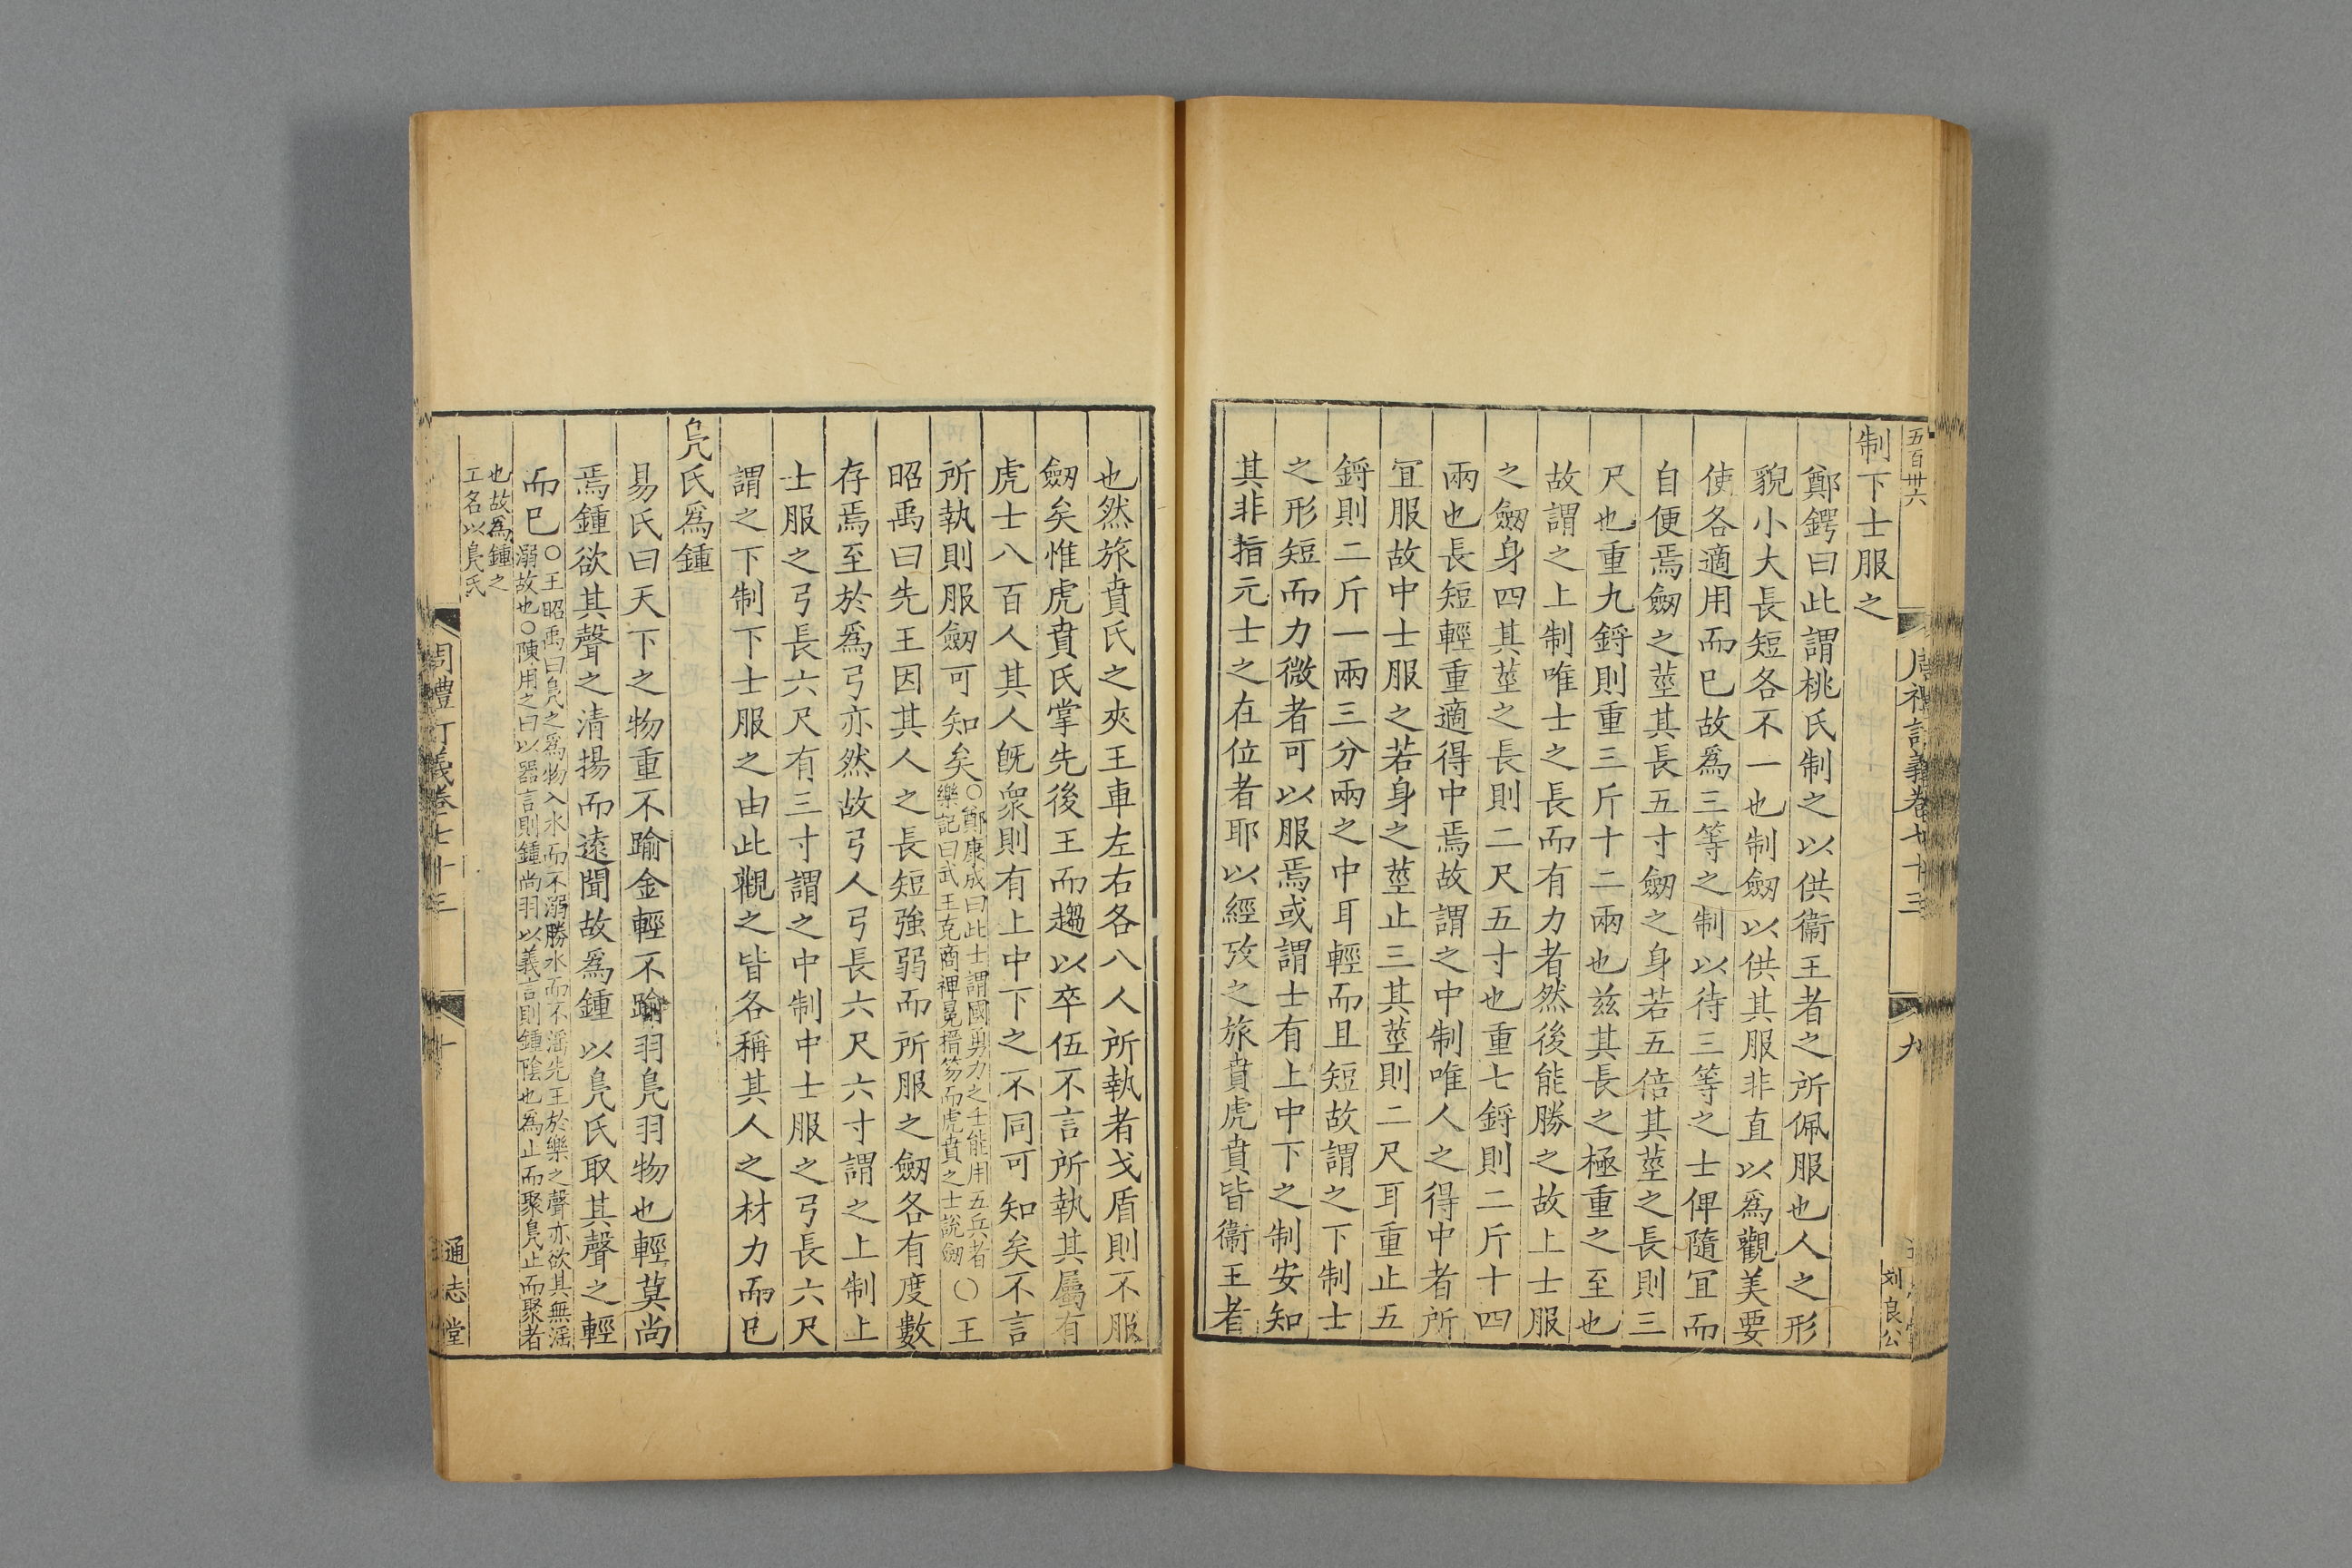 五百卅六
周禮訂義卷七十三
九
刘良公
制下士服之
鄭鍔曰此謂桃氏制之以供衞王者之所佩服也人之形
貌小大長短各不一也制劒以供其服非直以爲觀美要
使各適用而巳故爲三等之制以待三等之士俾隨冝而
自便焉劒之莖其長五寸劒之身若五倍其莖之長則三
尺也重九鋝則重三斤十二兩也兹其長之極重之至也
故謂之上制唯士之長而有力者然後能勝之故上士服
之劒身四其莖之長則二尺五寸也重七鋝則二斤十四
兩也長短輕重適得中焉故謂之中制唯人之得中者所
冝服故中士服之若身之莖止三其莖則二尺耳重止五
鋝則二斤一兩三分兩之中耳輕而且短故謂之下制士
之形短而力微者可以服焉或謂士有上中下之制安知
其非指元士之在位者耶以經攷之旅賁虎賁皆衞王者
也然旅賁氏之夾王車左右各八人所執者戈盾則不服
劒矣惟虎賁氏掌先後王而趨以卒伍不言所執其屬有
虎士八百人其人旣衆則有上中下之不同可知矣不言
所執則服劒可知矣○鄭康成曰此士謂國勇力之士能用五兵者樂記曰武王克商裨冕搢笏而虎賁之士說劒○王
昭禹曰先王因其人之長短強弱而所服之劒各有度數
存焉至於爲弓亦然故弓人弓長六尺六寸謂之上制上
士服之弓長六尺有三寸謂之中制中士服之弓長六尺
謂之下制下士服之由此觀之皆各稱其人之材力而巳
鳬氏爲鍾
易氏曰天下之物重不踰金輕不踰羽鳬羽物也輕莫尚
焉鍾欲其聲之清揚而遠聞故爲鍾以鳬氏取其聲之輕
而巳○王昭禹曰鳬之爲物入水而不溺勝水而不淫先王於樂之聲亦欲其無淫溺故也○陳用之曰以器言則鍾尚羽以義言則鍾陰也爲止而聚鳬止而聚者
也故爲鍾之
工名以鳬氏
周禮訂義卷七十三
十
通志堂